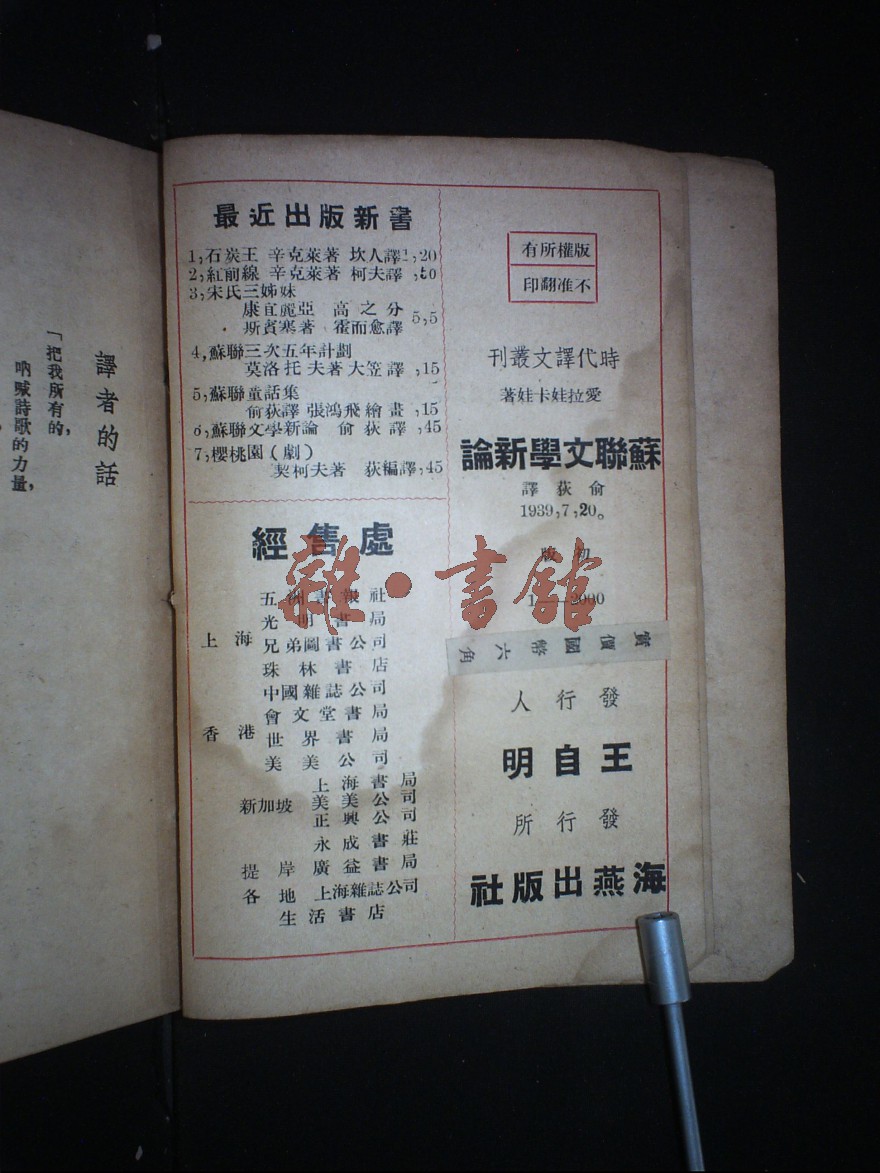 譯者的話
「把我所有的，
吶喊詩歌的力量，
版權所有
不准翻印
時代譯文叢刊
愛拉娃卡娃著
蘇聯文學新論
俞荻譯
1939,7,20。
初版
1——2000
實價國幣六角
發行人
王自明
發行所
海燕出版社
最近出版新書
1,石炭王 辛克萊著 坎人譯1,20
2,紅前線 辛克萊著 柯夫譯
3,宋氏三姊妹
康宜麗亞 高之分
斯賓塞著 霍而愈譯 5,5
4,蘇聯三次五年計劃
莫洛托夫著大笠譯,15
5,蘇聯童話集
俞荻譯 張鴻飛繪畫,15
6,蘇聯文學新論 俞荻譯,45
7,櫻桃園(劇)
契柯夫著 荻編譯,45
經售處
上海
五洲書報社
光明書局
兄弟圖書公司
珠林書店
中國雜誌公司
香港
會文堂書局
世界書局
美美公司
新加坡
上海書局
美美公司
正興公司
永成書莊
提岸 廣益書局
各地 上海雜誌公司
生活書店
雜·書館